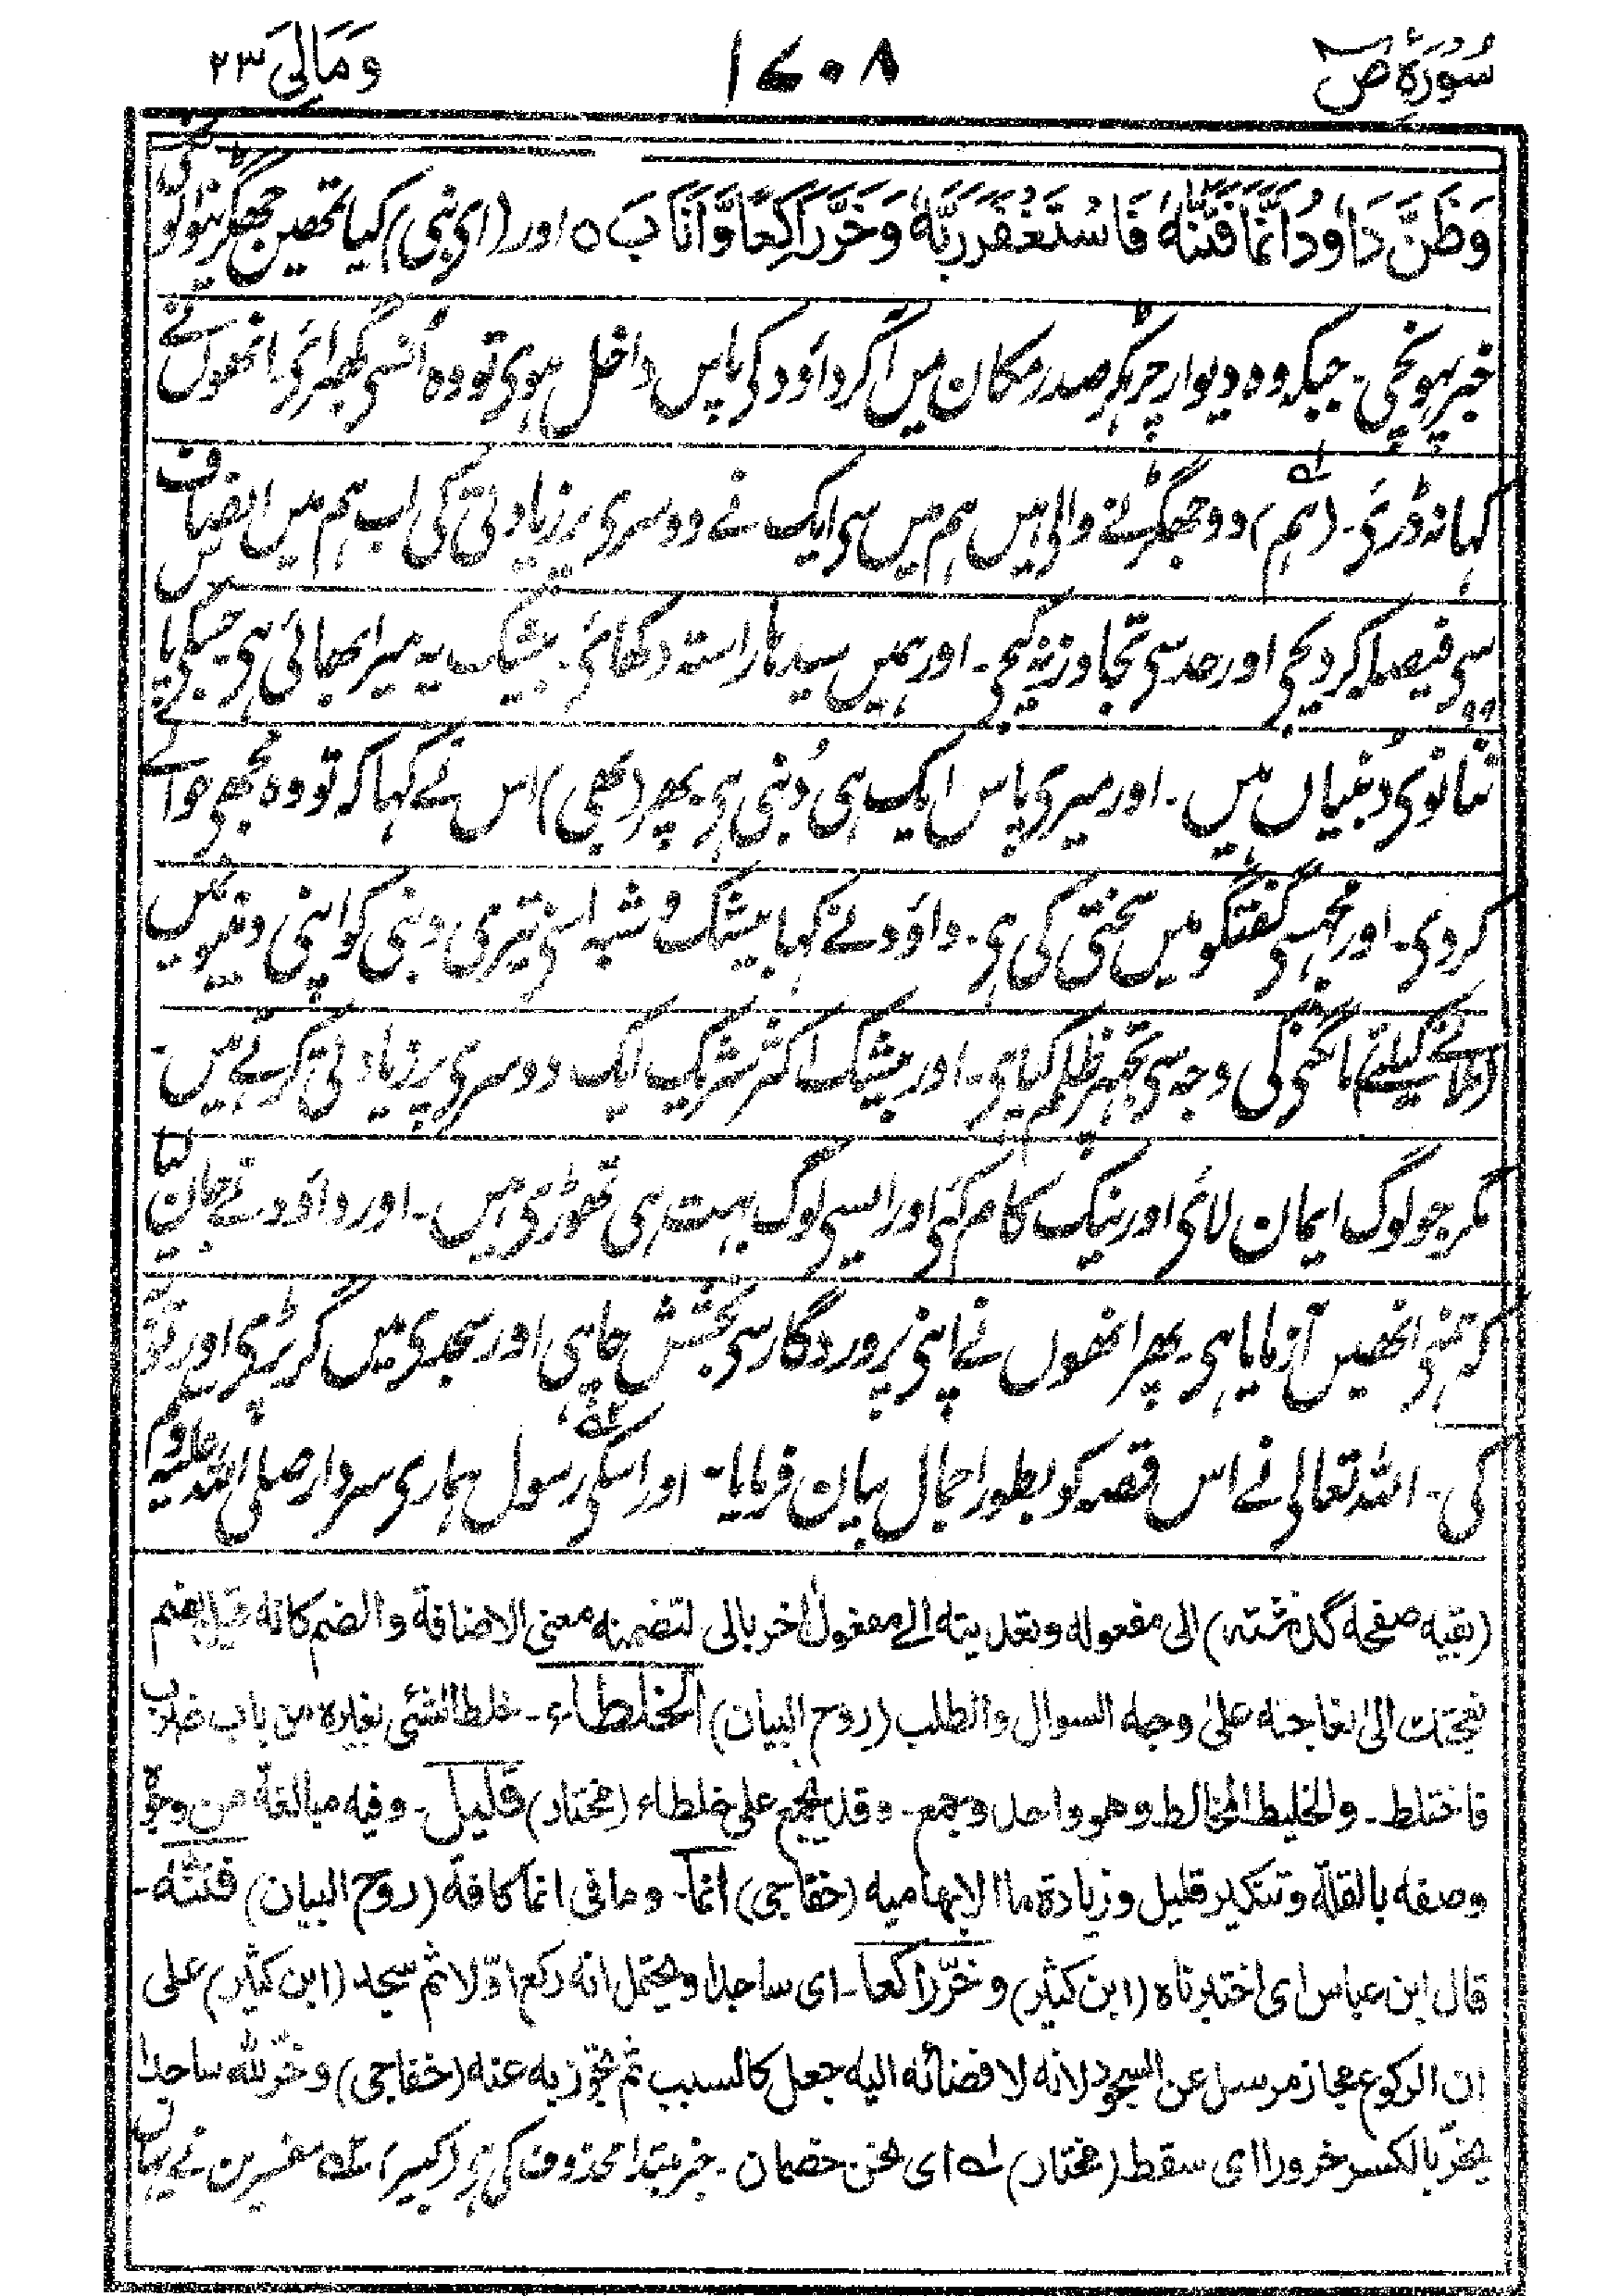 سُوْرَۃِ صٓ
۱۷۰۸
وَمَالِیَ ۲۳
وَظَنَّ دَاوٗدُ اَنَّمَا فَتَنّٰہُ فَاسْتَغْفَرَ رَبَّہٗ وَخَرَّ رَاکِعًا وَّاَنَابَ ۝ اور (ای نبی) کیا تمھین جھگڑنیوالوں کی
خبر پہونچی۔ جبکہ وہ دیوار چڑہکر صدر مکان میں آکر داؤد کی پاس داخل ہوی تو وہ اُنسی گھبرائی۔ انھوں نے
کہا نہ ڈرئی۔ (ہم) دو جھگڑنے والی ہیں ہم میں سی ایک نے دوسری پر زیادتی کی اب ہم میں انصاف
سی فیصلہ کر دیجی اور حد سی تجاوز نہ کیجی۔ اور ہمیں سیدہا راستہ دکھائی۔ بیشک یہ میرا بھائی ہی جسکی پاس
ننانوی دُنبیاں ہیں۔ اور میری پاس ایک ہی دُنبی ہی۔ پھر (بھی) اس نے کہا کہ تو وہ مجھی حوالے
کر دی۔ اور مجہسی گفتگو میں سختی کی ہی۔ داؤد نے کہا بیشک و شبہ اسنی تیری دنبی کو اپنی دنبیوں میں
(ملانے کیلئے) مانگنی کی وجہ سی تجہپر ظلم کیا ہی۔ اور بیشک اکثر شریک ایک دوسری پر زیادتی کرتے ہیں۔
مگر جو لوگ ایمان لائی اور نیک کام کئی اور ایسی لوگ بہت ہی تھوڑی ہیں۔ اور داؤد نے جان لیا
کہ ہمنی انھیں آزمایا ہی۔ پھر انھوں نے اپنی پروردگار سی بخشش چاہی اور سجدی میں گر پڑی اور توبہ
کی۔ اللہ تعالی نے اس قصہ کو بطور اجمال بیان فرمایا۔ اور اسکی رسول ہماری سردار صلی اللہ علیہ وسلم
(بقیہ صفحہ گذشتہ) الی مفعولہ وتعدیتہ الی مفعول اٰخر بالی لتضمنہ معنی الاضافۃ والضم کانہ قیل بضم
نعجتک الی نعاجہ علی وجہ السوال والطلب (روح البیان) الخلطاء۔ خلط الشئی بغیرہ من باب ضرب
فاختلط۔ والخلیط المخالط وھو واحد وجمع۔ وقد یجمع علی خلطاء (مختار) قلیل۔ وفیہ مبالغۃ من وجوہ
وصفہ بالقلۃ وتنکیر قلیل وزیادۃ ما الابھامیہ (خفاجی) انما۔ وما فی انما کافۃ (روح البیان) فتنّٰہ۔
قال ابن عباس ای اختبرناہ (ابن کثیر) وخرّ راکعا۔ ای ساجدا ویحتمل انہ رکع اوّلا ثم سجد (ابن کثیر) علی
ان الرکوع مجاز مرسل عن السجود لانہ لافضائہ الیہ جعل کالسبب ثم تجوز بہ عنہ (خفاجی) وخرّ للہ ساجدا
یخرّ بالکسر خرورا ای سقط (مختار) لہ ای نحن خصمان۔ خبر مبتدا محذوف کی ہی (کبیر) مفسرین نے یہاں